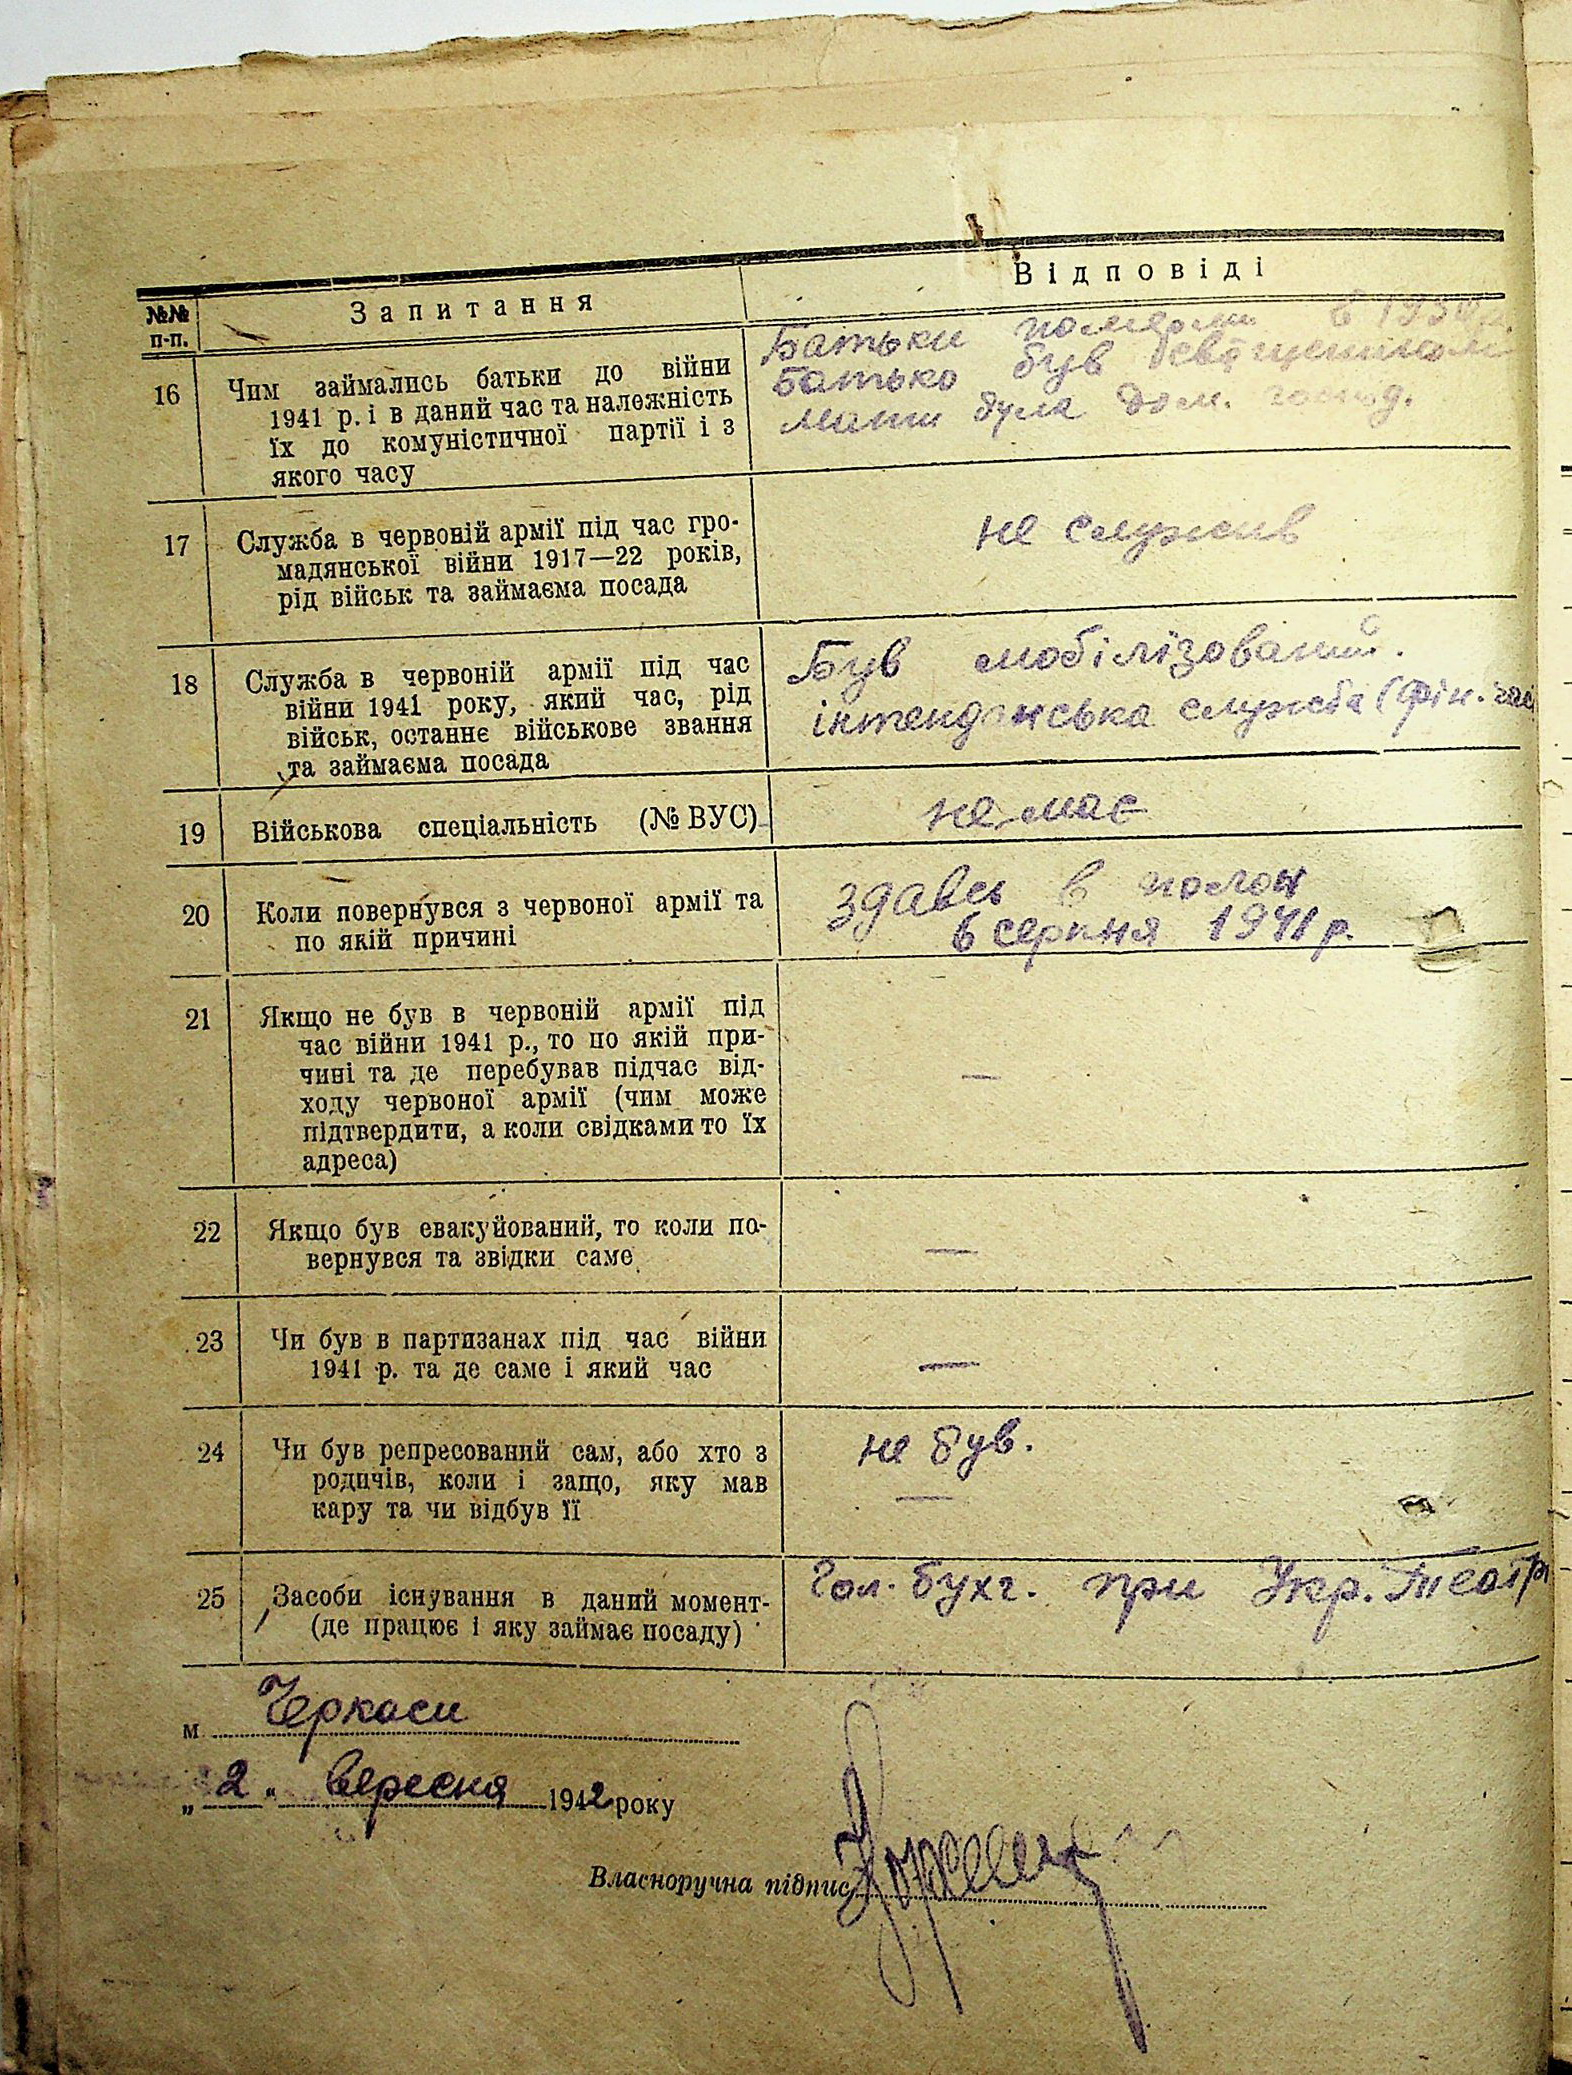 №№ п-п.
Запитання
Відповіді
16
Чим займались батьки до війни
1941 р. і в даний час та належність
їх до комуністичної партії і з
якого часу
Батьки померли в
Батько був священиком
мати була дом. господ.
17
Служба в червоній армії під час гро-
мадянської війни 1917—22 років,
рід військ та займаєма посада
не служив
18
Служба в червоній армії під час
війни 1941 року, який час, рід
військ, останнє військове звання
та займаєма посада
Був мобілізований.
інтендантська служба (фін. час
19
Військова спеціальність (№ ВУС)
не має
20
Коли повернувся з червоної армії та
по якій причині
здавсь в полон
6 серпня 1941 р.
21
Якщо не був в червоній армії під
час війни 1941 р., то по якій при-
чині та де перебував підчас від-
ходу червоної армії (чим може
підтвердити, а коли свідками то їх
адреса)
—
22
Якщо був евакуйований, то коли по-
вернувся та звідки саме
—
23
Чи був в партизанах під час війни
1941 р. та де саме і який час
—
24
Чи був репресований сам, або хто з
родичів, коли і защо, яку мав
кару та чи відбув її
не був.
—
25
Засоби існування в даний момент-
(де працює і яку займає посаду)
Гол. бухг. при Укр. Театр
м Черкаси
„2" вересня 1942 року
Власноручна підпис